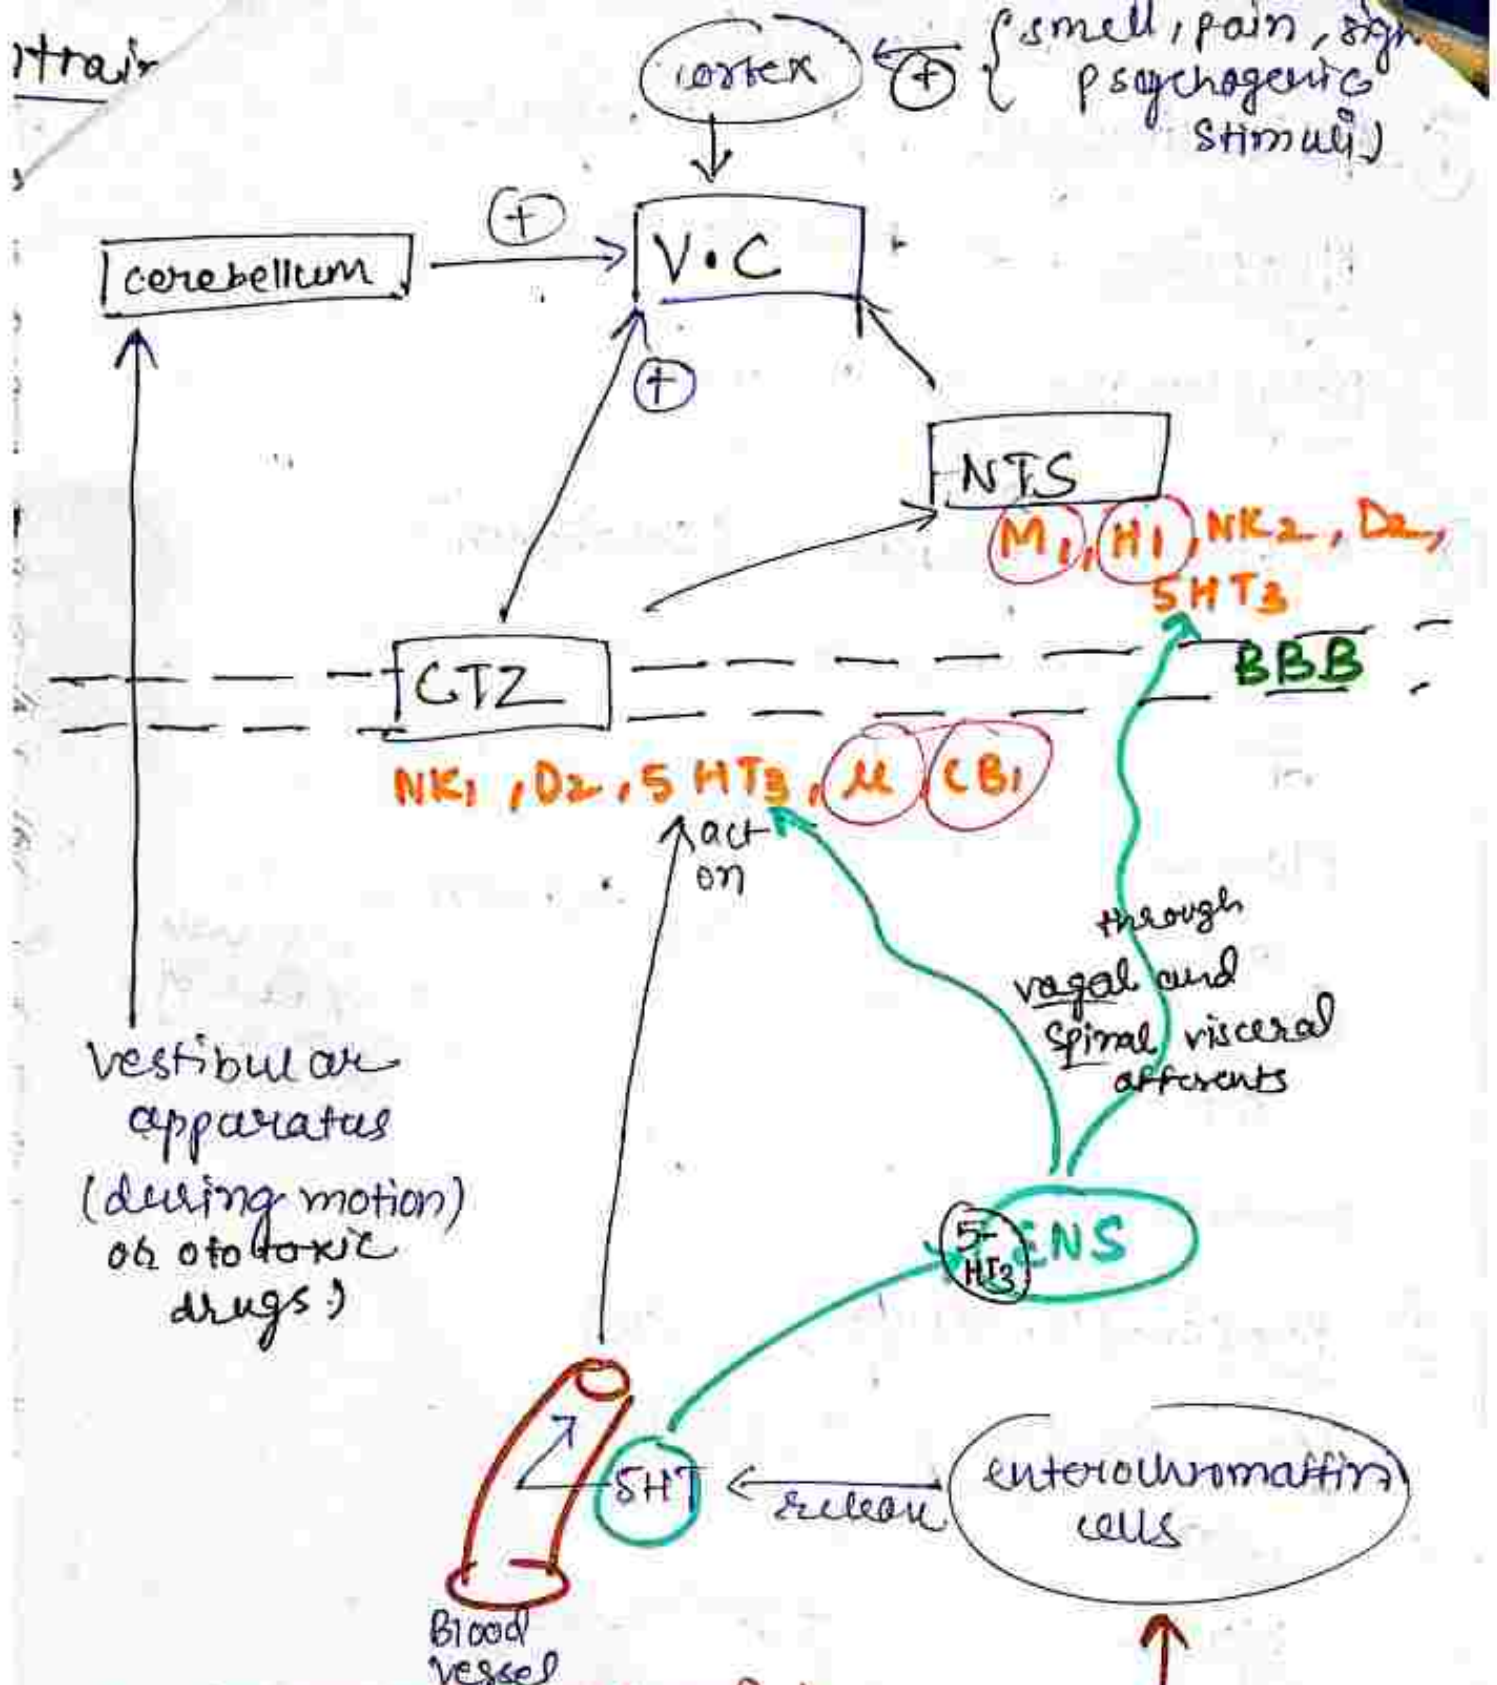 cortex
(+)
{smell, pain, sigh
psychogenic
stimuli)
(+)
cerebellum
V.C
(+)
NTS
M1, H1, NK2, D2,
5HT3
BBB
CTZ
NK1, D2, 5HT3, μ CB1
act
on
through
vagal and
spinal visceral
afferents
vestibular
apparatus
(during motion)
or ototoxic
drugs.)
5-
HT3
ENS
5HT
release
enterochromaffin
cells
Blood
vessel